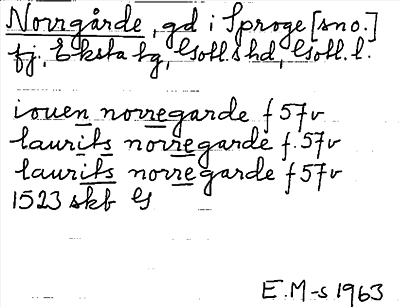 Norrgårde, gd i Sproge [sno.]
fj., Eksta tg, Gotl.s hd, Gotl. l.
iouen norregarde f 57v
laurits norregarde f. 57v
laurits norregarde f 57v
1523 skb G
E.M-s 1963